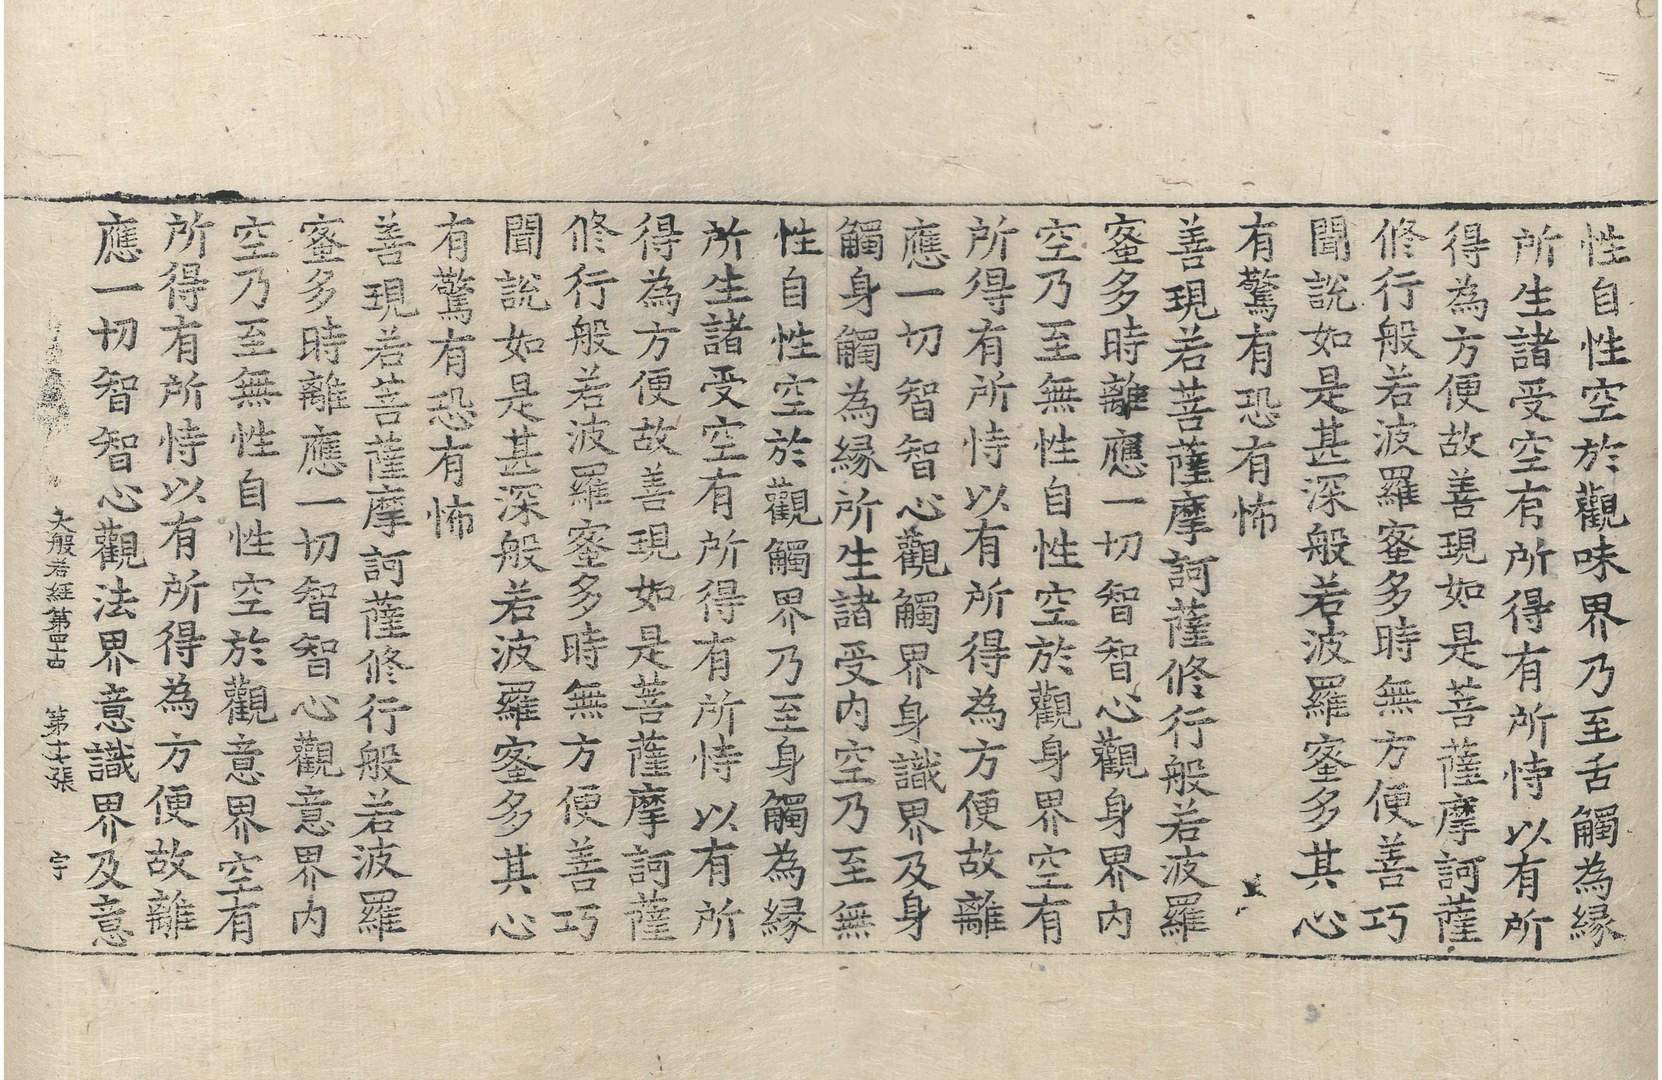 性自性空於觀味界乃至舌觸為縁
所生諸受空有所得有所恃以有所
得為方便故善現如是菩薩摩訶薩
修行般若波羅蜜多時無方便善巧
聞說如是甚深般若波羅蜜多其心
有驚有恐有怖
善現若菩薩摩訶薩修行般若波羅
蜜多時離應一切智智心觀身界内
空乃至無性自性空於觀身界空有
所得有所恃以有所得為方便故離
應一切智智心觀觸界身識界及身
觸身觸為縁所生諸受内空乃至無
性自性空於觀觸界乃至身觸為縁
所生諸受空有所得有所恃以有所
得為方便故善現如是菩薩摩訶薩
修行般若波羅蜜多時無方便善巧
聞說如是甚深般若波羅蜜多其心
有驚有恐有怖
善現若菩薩摩訶薩修行般若波羅
蜜多時離應一切智智心觀意界内
空乃至無性自性空於觀意界空有
所得有所恃以有所得為方便故離
應一切智智心觀法界意識界及意
大般若經第四十四 第十七張 宇